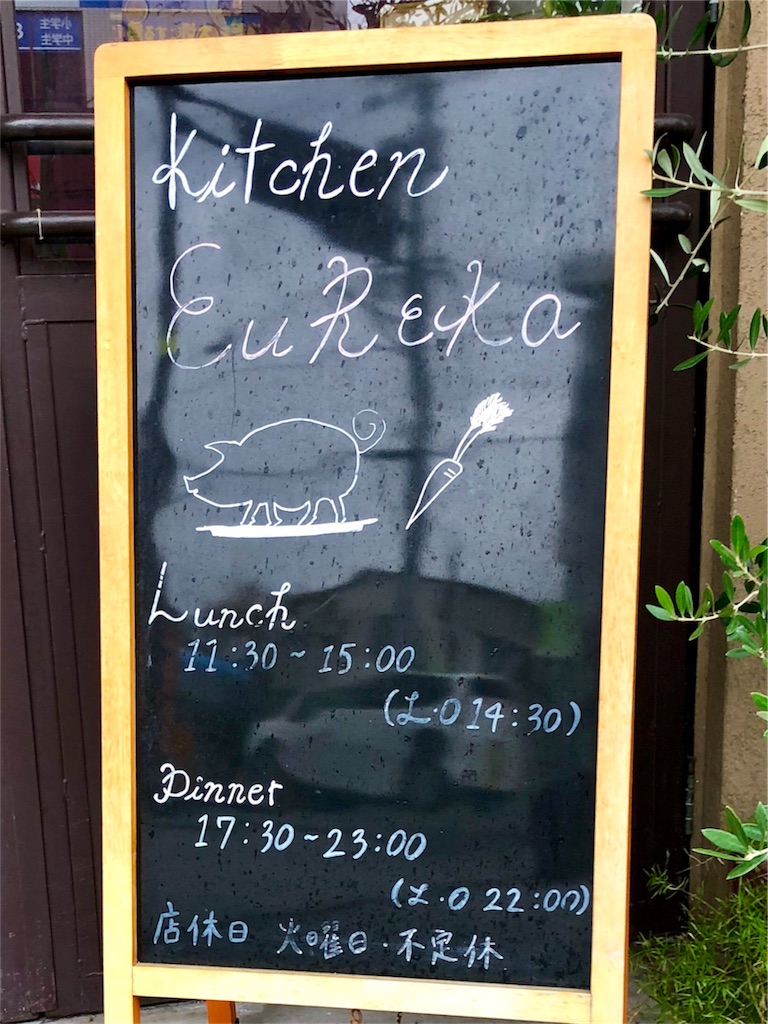 Kitchen
EuReKa
Lunch
11:30~15:00
(L.O 14:30)
Dinner
17:30~23:00
(L.O 22:00)
店休日 火曜日・不定休